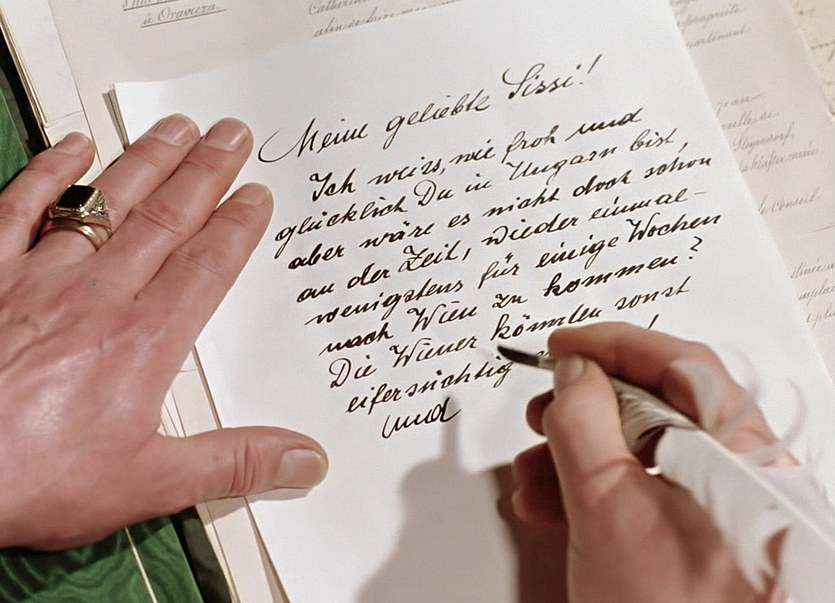 à Oravicza.
Meine geliebte Sissi!
Ich weiss, wie froh und
glücklich Du in Ungarn bist,
aber wäre es nicht doch schon
an der Zeit, wieder einmal -
wenigstens für einige Wochen
nach Wien zu kommen?
Die Wiener könnten sonst
eifersüchtig
und
propriété
maintenant
Conseil